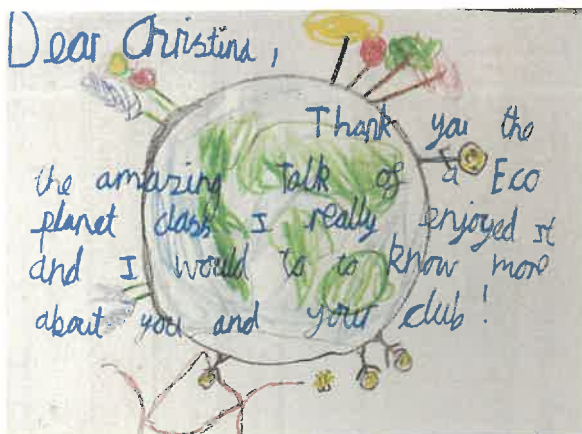 Dear Christina,
Thank you the
the amazing talk of a Eco
planet class I really enjoyed it
and I would to to know more
about you and your club!